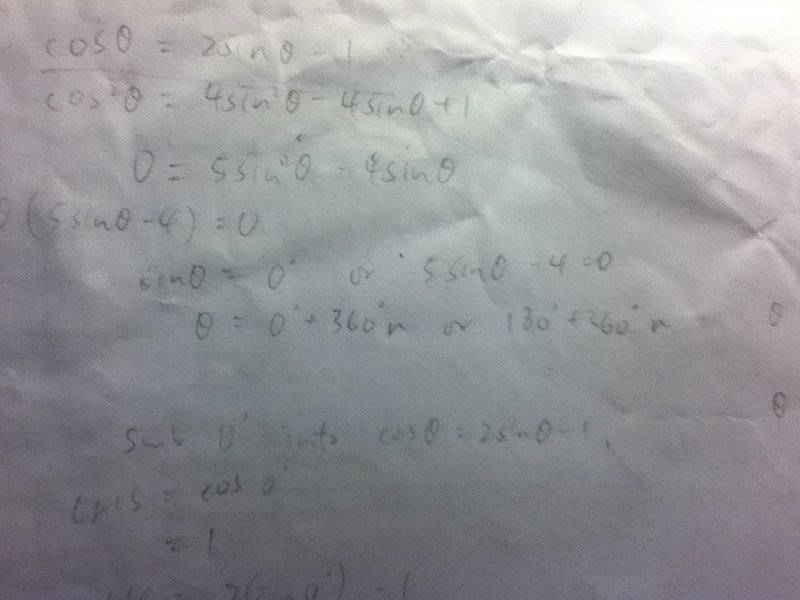 cosθ = 2sinθ - 1
cos²θ = 4sin²θ - 4sinθ + 1
0 = 5sin²θ - 4sinθ
θ (5sinθ - 4) = 0
sinθ = 0° or 5sinθ - 4 = 0
θ = 0° + 360°n or 180° + 360°n θ
θ
Sub 0° into cosθ = 2sinθ - 1,
LHS = cos 0°
= 1